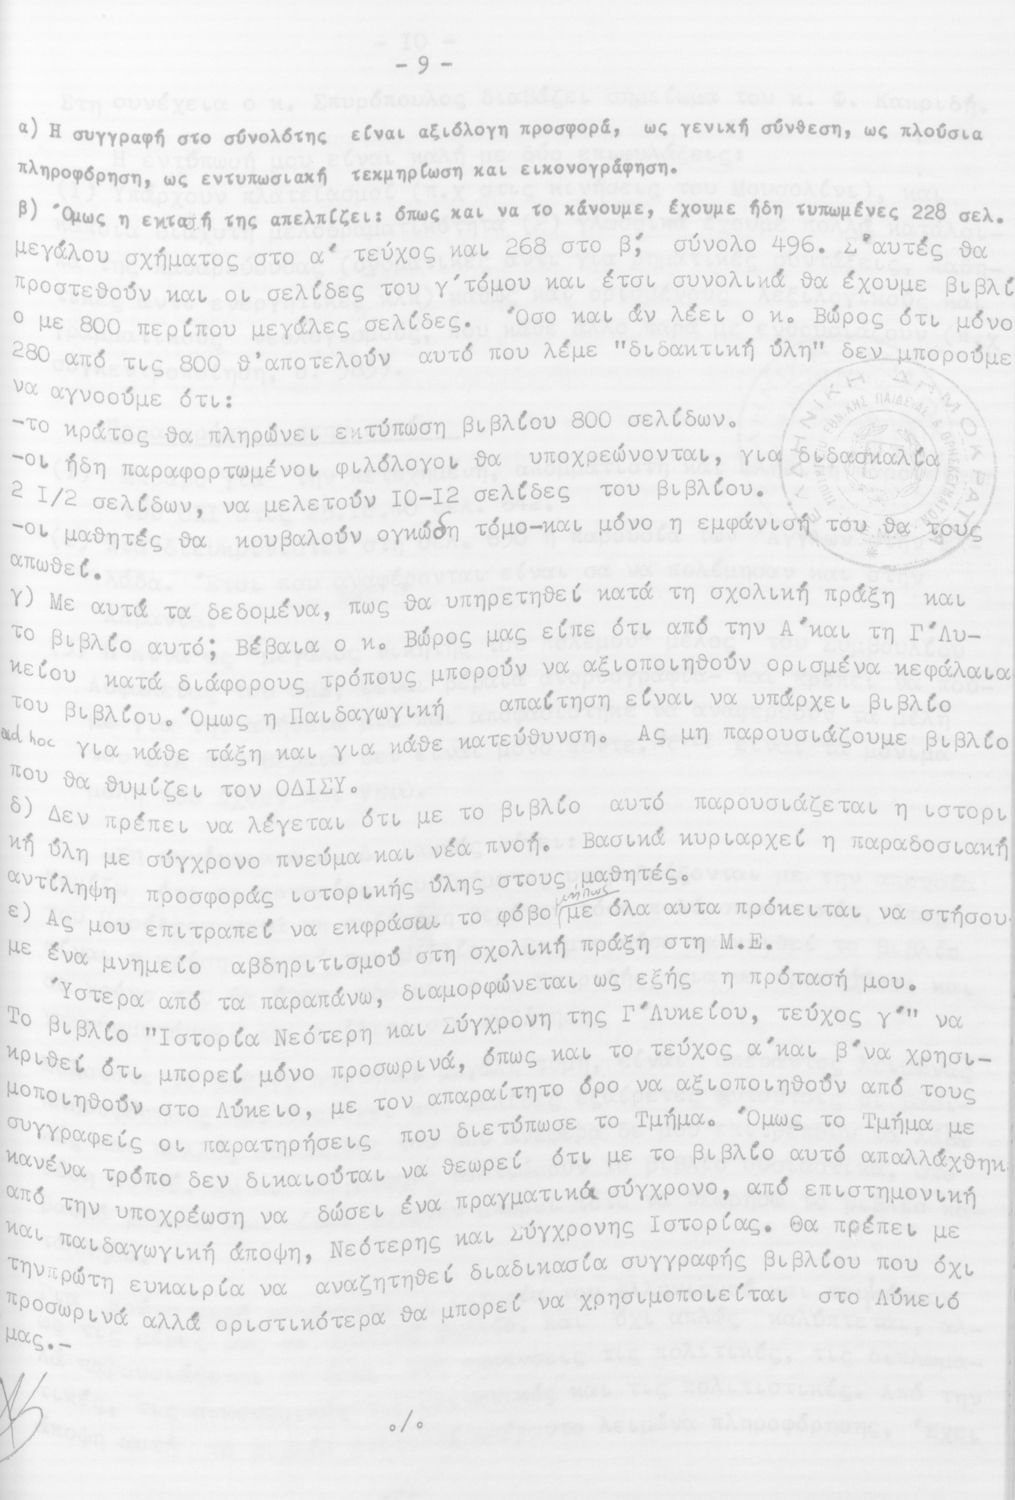 - 9 -
α) Η συγγραφή στο σύνολότης είναι αξιόλογη προσφορά, ως γενική σύνθεση, ως πλούσια
πληροφόρηση, ως εντυπωσιακή τεκμηρίωση και εικονογράφηση.
β) Όμως η εκτασή της απελπίζει: όπως και να το κάνουμε, έχουμε ήδη τυπωμένες 228 σελ.
μεγάλου σχήματος στο α' τεύχος και 268 στο β; σύνολο 496. Σ'αυτές θα
προστεθούν και οι σελίδες του γ'τόμου και έτσι συνολικά θα έχουμε βιβλί
ο με 800 περίπου μεγάλες σελίδες. Όσο και άν λέει ο κ. Βώρος ότι μόνο
280 από τις 800 θ'αποτελούν αυτό που λέμε "διδακτική ύλη" δεν μπορούμε
να αγνοούμε ότι:
-το κράτος θα πληρώνει εκτύπωση βιβλίου 800 σελίδων.
-οι ήδη παραφορτωμένοι φιλόλογοι θα υποχρεώνονται, για διδασκαλία
2 I/2 σελίδων, να μελετούν IO-I2 σελίδες του βιβλίου.
-οι μαθητές θα κουβαλούν ογκώδη τόμο-και μόνο η εμφάνισή του θα τους
απωθεί.
γ) Με αυτά τα δεδομένα, πως θα υπηρετηθεί κατά τη σχολική πράξη και
το βιβλίο αυτό; Βέβαια ο κ. Βώρος μας είπε ότι από την Α'και τη Γ'Λυ-
κείου κατά διάφορους τρόπους μπορούν να αξιοποιηθούν ορισμένα κεφάλαια
του βιβλίου. Όμως η Παιδαγωγική απαίτηση είναι να υπάρχει βιβλίο
ad hoc για κάθε τάξη και για κάθε κατεύθυνση. Ας μη παρουσιάζουμε βιβλίο
που θα θυμίζει τον ΟΔΙΣΥ.
δ) Δεν πρέπει να λέγεται ότι με το βιβλίο αυτό παρουσιάζεται η ιστορι
κή ύλη με σύγχρονο πνεύμα και νέα πνοή. Βασικά κυριαρχεί η παραδοσιακή
αντίληψη προσφοράς ιστορικής ύλης στους μαθητές.
ε) Ας μου επιτραπεί να εκφράσω το φόβο μήπως με όλα αυτα πρόκειται να στήσου
με ένα μνημείο αβδηριτισμού στη σχολική πράξη στη Μ.Ε.
Ύστερα από τα παραπάνω, διαμορφώνεται ως εξής η πρότασή μου.
Το βιβλίο "Ιστορία Νεότερη και Σύγχρονη της Γ'Λυκείου, τεύχος γ'" να
κριθεί ότι μπορεί μόνο προσωρινά, όπως και το τεύχος α'και β'να χρησι-
μοποιηθούν στο Λύκειο, με τον απαραίτητο όρο να αξιοποιηθούν από τους
συγγραφείς οι παρατηρήσεις που διετύπωσε το Τμήμα. Όμως το Τμήμα με
κανένα τρόπο δεν δικαιούται να θεωρεί ότι με το βιβλίο αυτό απαλλάχθηκ
από την υποχρέωση να δώσει ένα πραγματικά σύγχρονο, από επιστημονική
και παιδαγωγική άποψη, Νεότερης και Σύγχρονης Ιστορίας. Θα πρέπει με
τηνπρώτη ευκαιρία να αναζητηθεί διαδικασία συγγραφής βιβλίου που όχι
προσωρινά αλλά οριστικότερα θα μπορεί να χρησιμοποιείται στο Λύκειό
μας.-
ο/ο